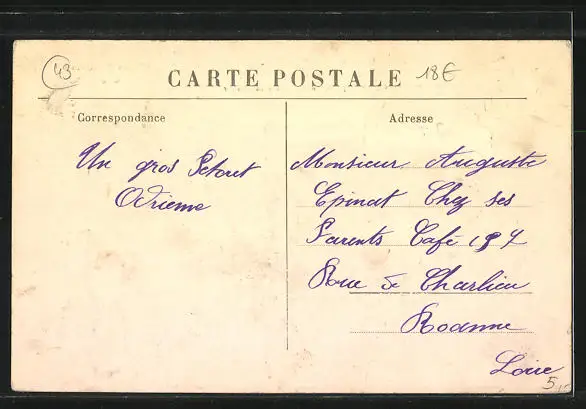 43
CARTE POSTALE 18E
Correspondance
Adresse
Un gros Petoret
Adrienne
Monsieur Auguste
Epinat Chez ses
Parents Café 197
Rue de Charlieu
Roanne
Loire
5